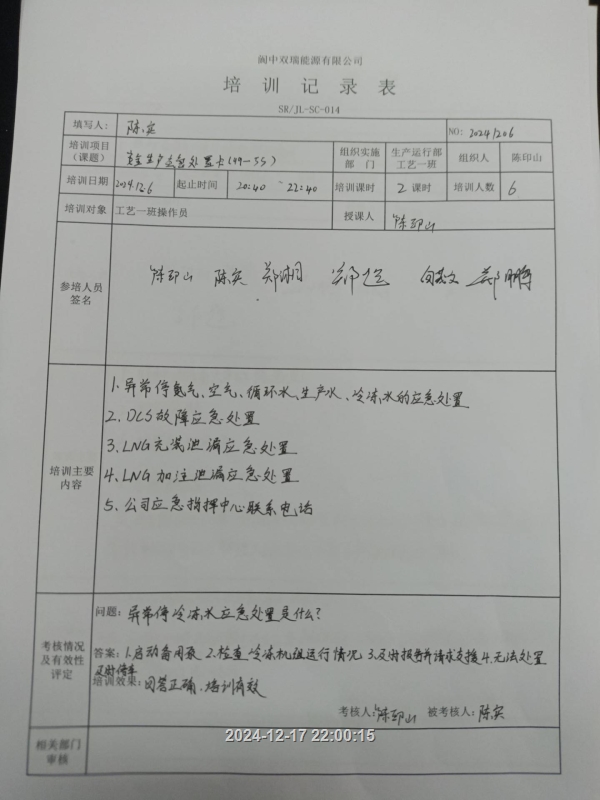 阆中双瑞能源有限公司
培训记录表
SR/JL-SC-014
填写人: 陈实 NO: 20241206
培训项目(课题) 安全生产应急处置卡(49-55) 组织实施部门 生产运行部工艺一班 组织人 陈印山
培训日期 2024.12.6 起止时间 20:40 ~ 22:40 培训课时 2 课时 培训人数 6
培训对象 工艺一班操作员 授课人 陈印山
参培人员签名 陈印山 陈实 郑湘
培训主要内容
1、异常停氮气、空气、循环水、生产水、冷冻水的应急处置
2、DCS故障应急处置
3、LNG充装泄漏应急处置
4、LNG加注泄漏应急处置
5、公司应急指挥中心联系电话
考核情况及有效性评定
问题: 异常停冷冻水应急处置是什么?
答案: 1.启动备用泵 2.检查冷冻机组运行情况 3.及时报告并请求支援 4.无法处置
及时停车
培训效果: 回答正确、培训有效
考核人: 陈印山 被考核人: 陈实
相关部门审核
2024-12-17 22:00:15